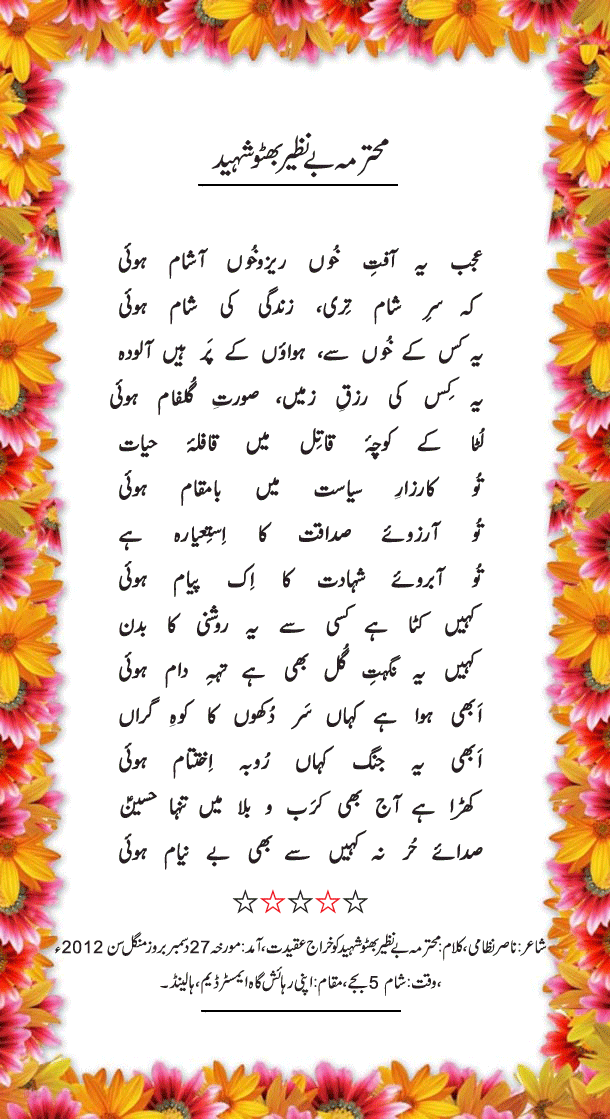 محترمہ بے نظیر بھٹو شہید
عجب یہ آفتِ خُوں ریز و خُوں آشام ہوئی
کہ سرِ شام تِری، زندگی کی شام ہوئی
یہ کس کے خُوں سے، ہواؤں کے پَر ہیں آلودہ
یہ کِس کی رزقِ زمیں، صورتِ گُلفام ہوئی
لُٹا کے کوچۂ قاتِل میں قافلۂ حیات
تُو کارزارِ سیاست میں بامقام ہوئی
تُو آرزوئے صداقت کا اِستِعیارہ ہے
تُو آبروئے شہادت کا اِک پیام ہوئی
کہیں کٹا ہے کسی سے یہ روشنی کا بدن
کہیں یہ نگہتِ گُل بھی ہے تہہِ دام ہوئی
اَبھی ہوا ہے کہاں سَر دُکھوں کا کوہِ گراں
اَبھی یہ جنگ کہاں رُوبہ اِختتام ہوئی
کھڑا ہے آج بھی کرَب و بلا میں تنہا حسینؑ
صدائے حُر نہ کہیں سے بھی بے نیام ہوئی
شاعر: ناصر نظامی، کلام: محترمہ بے نظیر بھٹو شہید کو خراج عقیدت، آمد: مورخہ 27 دسمبر بروز منگل سن 2012ء
، وقت: شام 5 بجے، مقام: اپنی رہائش گاہ ایمسٹرڈیم، ہالینڈ۔